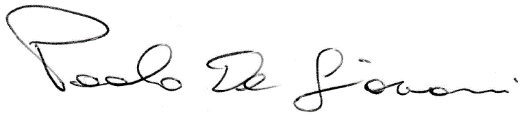 Paolo De Giovanni